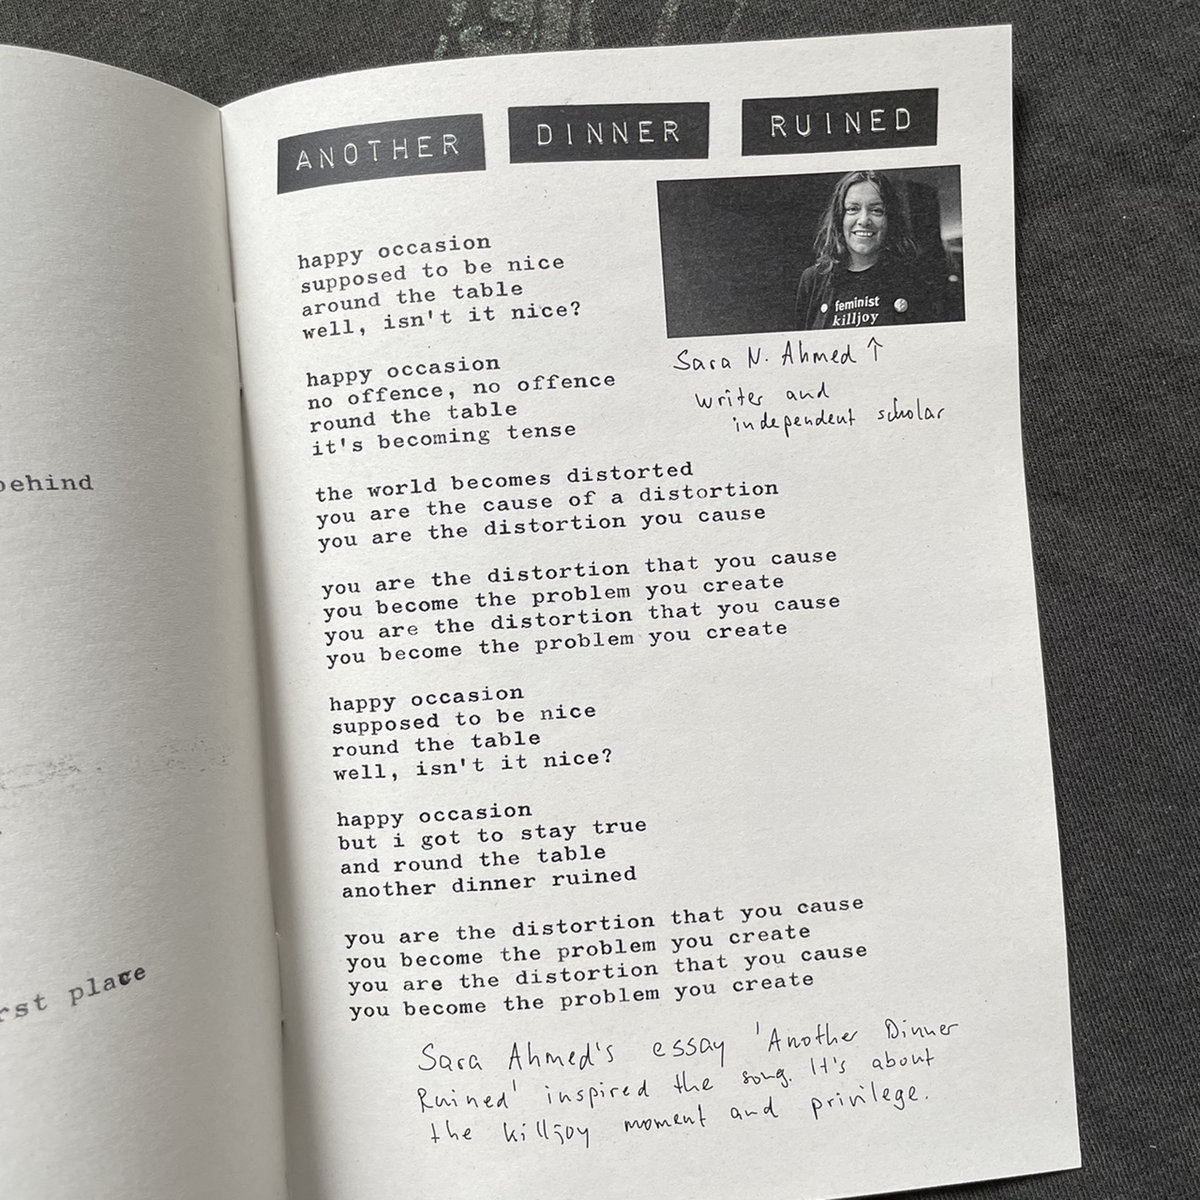 behind
place
ANOTHER DINNER RUINED
feminist
killjoy
Sara N. Ahmed ↑
writer and
independent scholar
happy occasion
supposed to be nice
around the table
well, isn't it nice?
happy occasion
no offence, no offence
round the table
it's becoming tense
the world becomes distorted
you are the cause of a distortion
you are the distortion you cause
you are the distortion that you cause
you become the problem you create
you are the distortion that you cause
you become the problem you create
happy occasion
supposed to be nice
round the table
well, isn't it nice?
happy occasion
but i got to stay true
and round the table
another dinner ruined
you are the distortion that you cause
you become the problem you create
you are the distortion that you cause
you become the problem you create
Sara Ahmed's essay 'Another Dinner
Ruined' inspired the song. It's about
the killjoy moment and privilege.